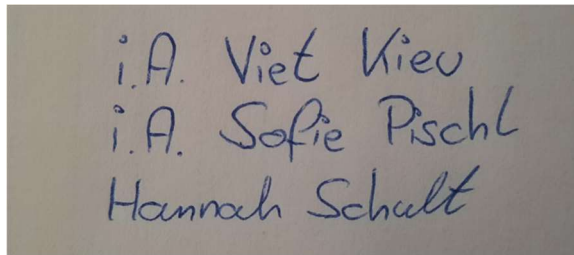 i.A. Viet Kieu
i.A. Sofie Pischl
Hannah Schult